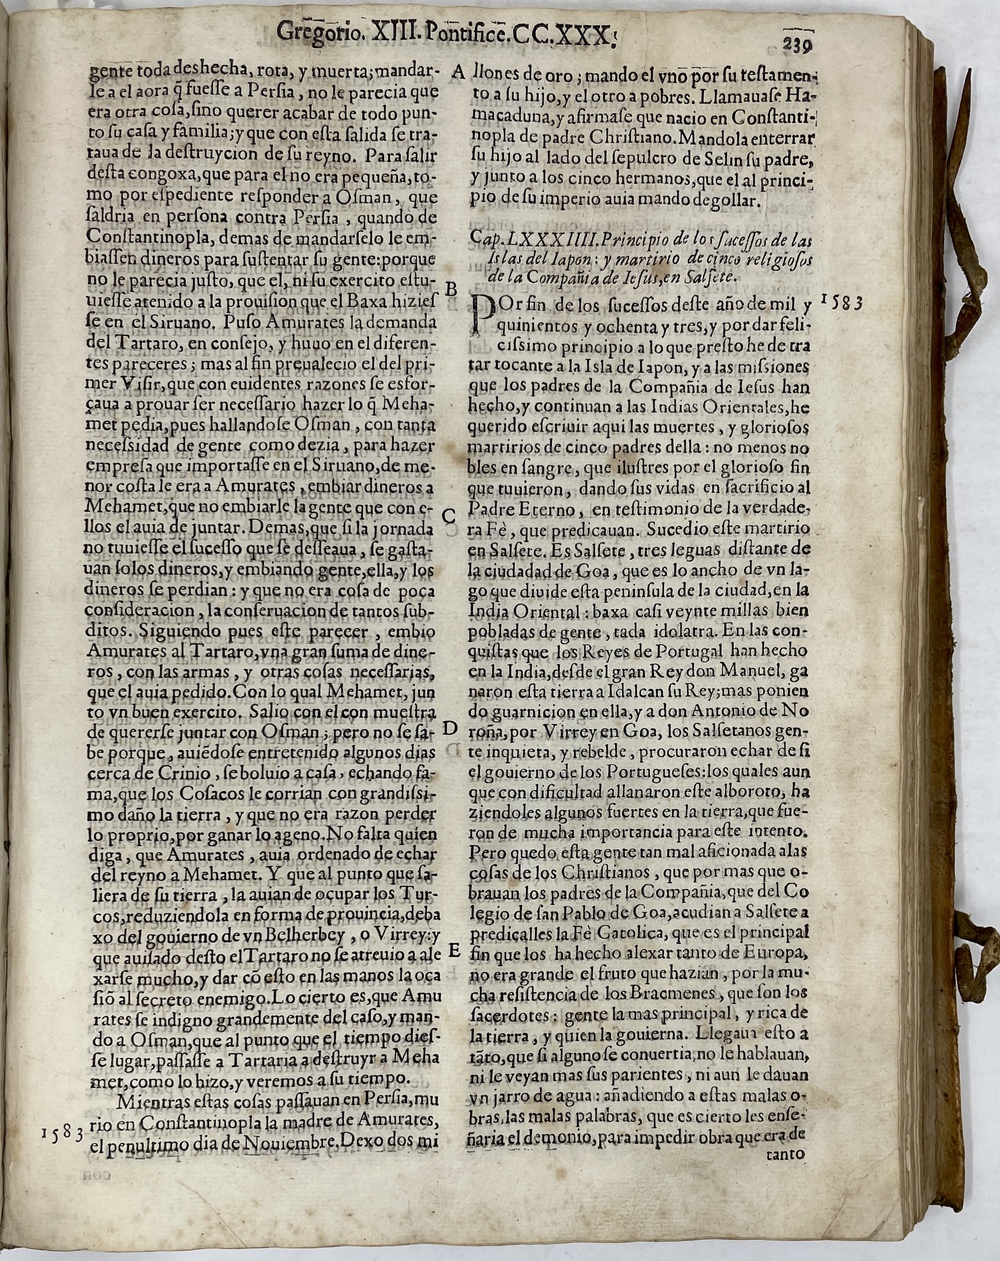 Gregorio. XIII. Pontifice. CC.XXX.
239
gente toda deshecha, rota, y muerta; mandar-
le a el aora q̃ fuesse a Persia, no le parecia que
era otra cosa, sino querer acabar de todo pun-
to su casa y familia; y que con esta salida se tra-
taua de la destruycion de su reyno. Para salir
desta congoxa, que para el no era pequeña, to-
mo por espediente responder a Osman, que
saldria en persona contra Persia, quando de
Constantinopla, demas de mandarselo le em-
biassen dineros para sustentar su gente: porque
no le parecia justo, que el, ni su exercito estu-
uiesse atenido a la prouision que el Baxa hizies
se en el Siruano. Puso Amurates la demanda
del Tartaro, en consejo, y huuo en el diferen-
tes pareceres; mas al fin preualecio el del pri-
mer Visir, que con euidentes razones se esfor-
çaua a prouar ser necessario hazer lo q̃ Meha-
met pedia, pues hallandose Osman, con tanta
necessidad de gente como dezia, para hazer
empresa que importasse en el Siruano, de me-
nor costa le era a Amurates, embiar dineros a
Mehamet, que no embiarle la gente que con e-
llos el auia de juntar. Demas, que si la jornada
no tuuiesse el sucesso que se desseaua, se gasta-
uan solos dineros, y embiando gente, ella, y los
dineros se perdian: y que no era cosa de poca
consideracion, la conseruacion de tantos sub-
ditos. Siguiendo pues este parecer, embio
Amurates al Tartaro, vna gran suma de dine-
ros, con las armas, y otras cosas necessarias,
que el auia pedido. Con lo qual Mehamet, jun
to vn buen exercito. Salio con el con muestra
de quererse juntar con Osman; pero no se sa-
be porque, auiẽdose entretenido algunos dias
cerca de Crinio, se boluio a casa, echando fa-
ma, que los Cosacos le corrian con grandissi-
mo daño la tierra, y que no era razon perder
lo proprio, por ganar lo ageno. No falta quien
diga, que Amurates, auia ordenado de echar
del reyno a Mehamet. Y que al punto que sa-
liera de su tierra, la auian de ocupar los Tur-
cos, reduziendola en forma de prouincia, deba
xo del gouierno de vn Belherbey, o Virrey: y
que auisado desto el Tartaro no se atreuio a ale
xarse mucho, y dar cõ esto en las manos la oca
siõ al secreto enemigo. Lo cierto es, que Amu
rates se indigno grandemente del caso, y man-
do a Osman, que al punto que el tiempo dies-
se lugar, passasse a Tartaria a destruyr a Meha
met, como lo hizo, y veremos a su tiempo.
Mientras estas cosas passauan en Persia, mu
1583 rio en Constantinopla la madre de Amurates,
el penultimo dia de Nouiembre. Dexo dos mi
A
B
C
D
E
llones de oro; mando el vno por su testamen-
to a su hijo, y el otro a pobres. Llamauase Ha-
macaduna, y afirmase que nacio en Constanti-
nopla de padre Christiano. Mandola enterrar
su hijo al lado del sepulcro de Selin su padre,
y junto a los cinco hermanos, que el al princi-
pio de su imperio auia mando degollar.
Cap. LXXXIIII. Principio de los sucessos de las
Islas del Iapon: y martirio de cinco religiosos
de la Compañia de Iesus, en Salsete.
POr fin de los sucessos deste año de mil y 1583
quinientos y ochenta y tres, y por dar feli-
cissimo principio a lo que presto he de tra
tar tocante a la Isla de Iapon, y a las missiones
que los padres de la Compañia de Iesus han
hecho, y continuan a las Indias Orientales, he
querido escriuir aqui las muertes, y gloriosos
martirios de cinco padres della: no menos no
bles en sangre, que ilustres por el glorioso fin
que tuuieron, dando sus vidas en sacrificio al
Padre Eterno, en testimonio de la verdade-
ra Fè, que predicauan. Sucedio este martirio
en Salsete. Es Salsete, tres leguas distante de
la ciudadad de Goa, que es lo ancho de vn la-
go que diuide esta peninsula de la ciudad, en la
India Oriental: baxa casi veynte millas bien
pobladas de gente, tada idolatra. En las con-
quistas que los Reyes de Portugal han hecho
en la India, desde el gran Rey don Manuel, ga
naron esta tierra a Idalcan su Rey; mas ponien
do guarnicion en ella, y a don Antonio de No
roña, por Virrey en Goa, los Salsetanos gen-
te inquieta, y rebelde, procuraron echar de si
el gouierno de los Portugueses: los quales aun
que con dificultad allanaron este alboroto, ha
ziendoles algunos fuertes en la tierra, que fue-
ron de mucha importancia para este intento.
Pero quedo esta gente tan mal aficionada a las
cosas de los Christianos, que por mas que o-
brauan los padres de la Compañia, que del Co
legio de san Pablo de Goa, acudian a Salsete a
predicalles la Fè Catolica, que es el principal
fin que los ha hecho alexar tanto de Europa,
no era grande el fruto que hazian, por la mu-
cha resistencia de los Bracmenes, que son los
sacerdotes: gente la mas principal, y rica de
la tierra, y quien la gouierna. Llegaua esto a
tãto, que si alguno se conuertia, no le hablauan,
ni le veyan mas sus parientes, ni aun le dauan
vn jarro de agua: añadiendo a estas malas o-
bras, las malas palabras, que es cierto les ense-
ñaria el demonio, para impedir obra que era de
tanto